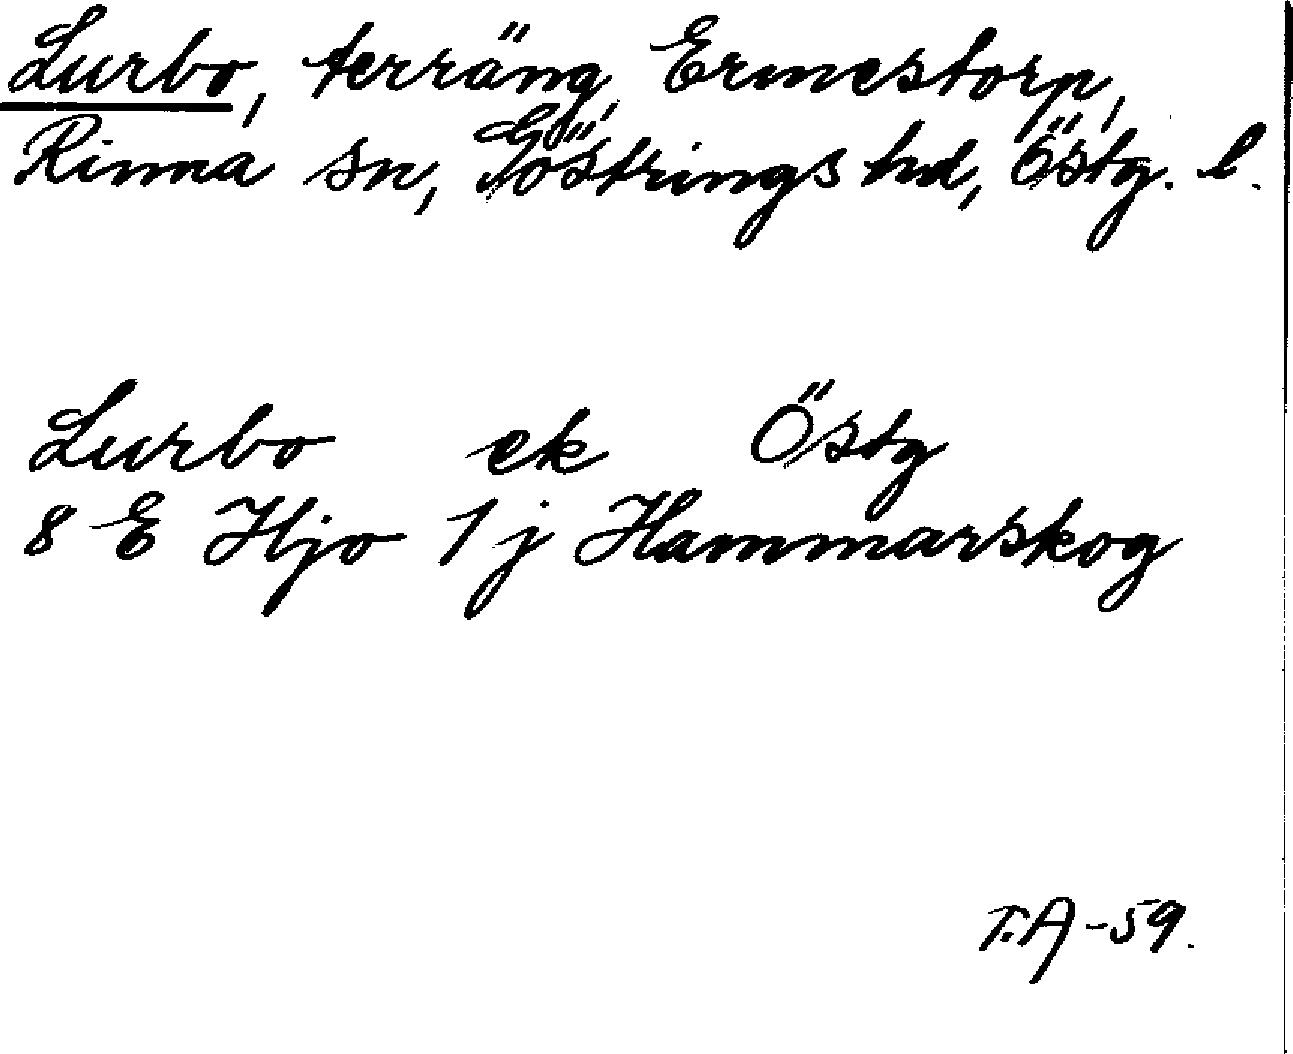 Lurbo, terräng, Ermestorp,
Rinna sn, Göstrings hd, Östg. l.
Lurbo ek Östg
8 E Hjo 1 j Hammarskog
T.A -59.